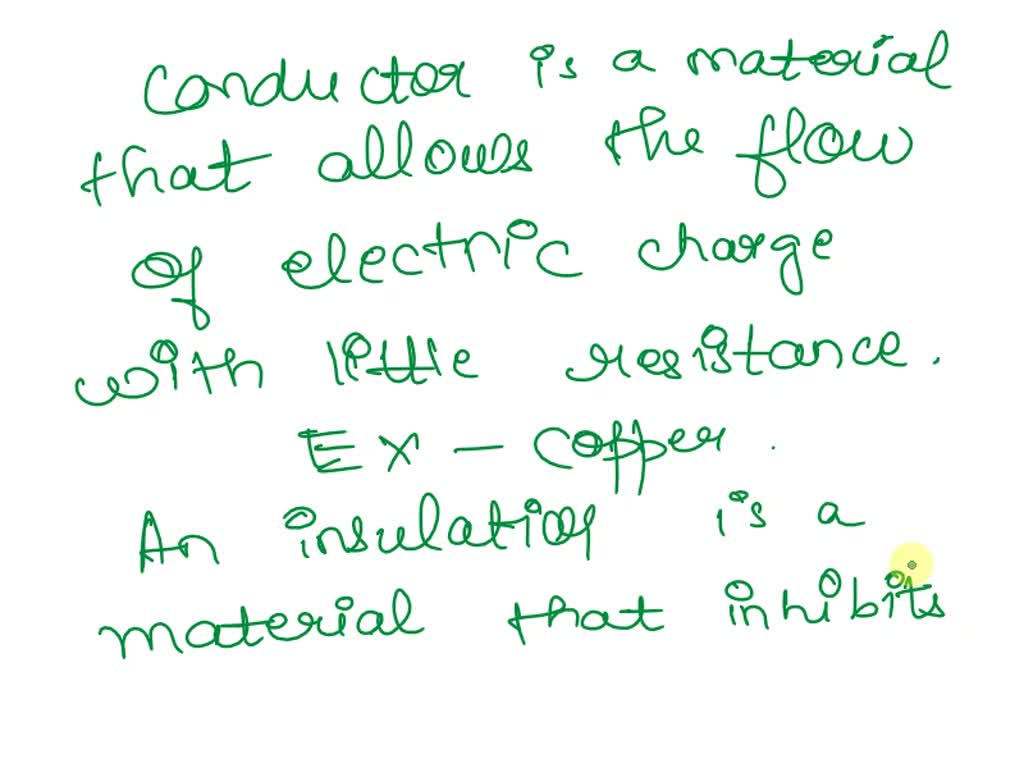 conductor is a material
that allows the flow
of electric charge
with little resistance.
Ex - Copper.
An insulatior is a
material that inhibits